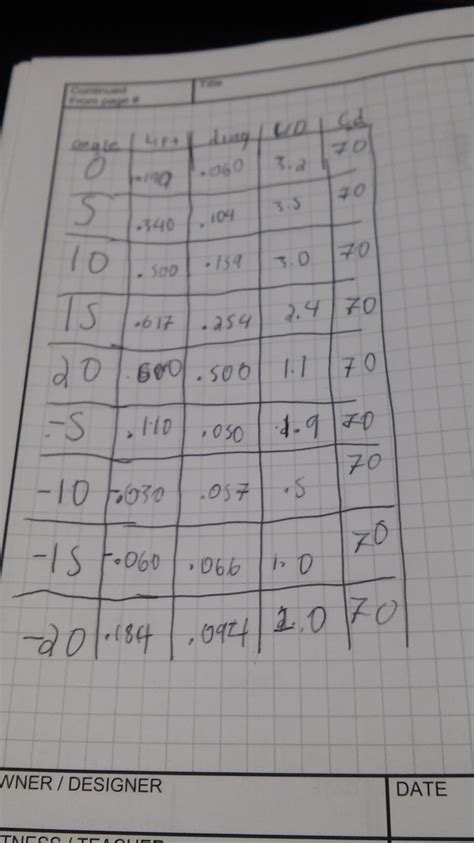 Continued
From page #
Title
angle Lift drag L/D Cd
0 .190 .060 3.2 70
5 .340 .104 3.5 70
10 .500 .159 3.0 70
15 .617 .254 2.4 70
20 .600 .500 1.1 70
-5 .110 .050 1.9 70
-10 -.030 .057 .5 70
-15 -.060 .066 1.0 70
-20 .184 .0921 2.0 70
WNER / DESIGNER
DATE
TNESS / TEACHER